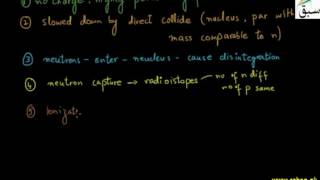 ① no charge, highly pe
② slowed down by direct collide (nucleus, par with
mass comparable to n)
③ neutrons - enter - neucleus - cause disintegration
④ neutron capture → radioistopes no of n diff
no of p same
⑤ Ionizat
سبق